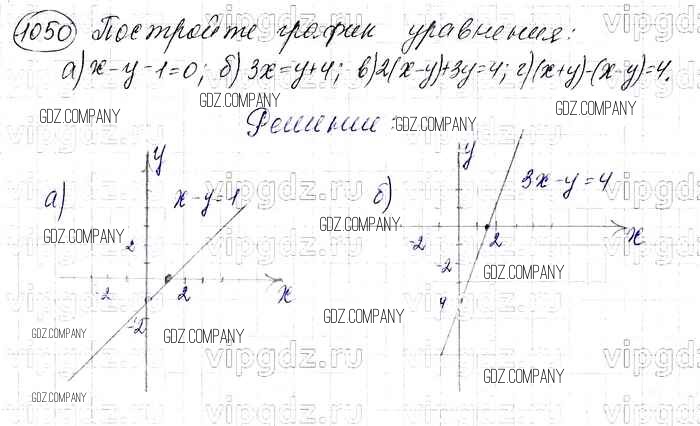 1050 Постройте график уравнения:
а) x-y-1=0; б) 3x=y+4; в) 2(x-y)+3y=4; г) (x+y)-(x-y)=4.
Решение:
а) x-y=1
y
2
-2 2 x
-2
б) 3x-y=4
y
-2 2 x
-2
4
GDZ.COMPANY
GDZ.COMPANY
GDZ.COMPANY
GDZ.COMPANY
GDZ.COMPANY
GDZ.COMPANY
GDZ.COMPANY
GDZ.COMPANY
GDZ.COMPANY
GDZ.COMPANY
GDZ.COMPANY
GDZ.COMPANY
GDZ.COMPANY
vipgdz.ru
vipgdz.ru
vipgdz.ru
vipgdz.ru